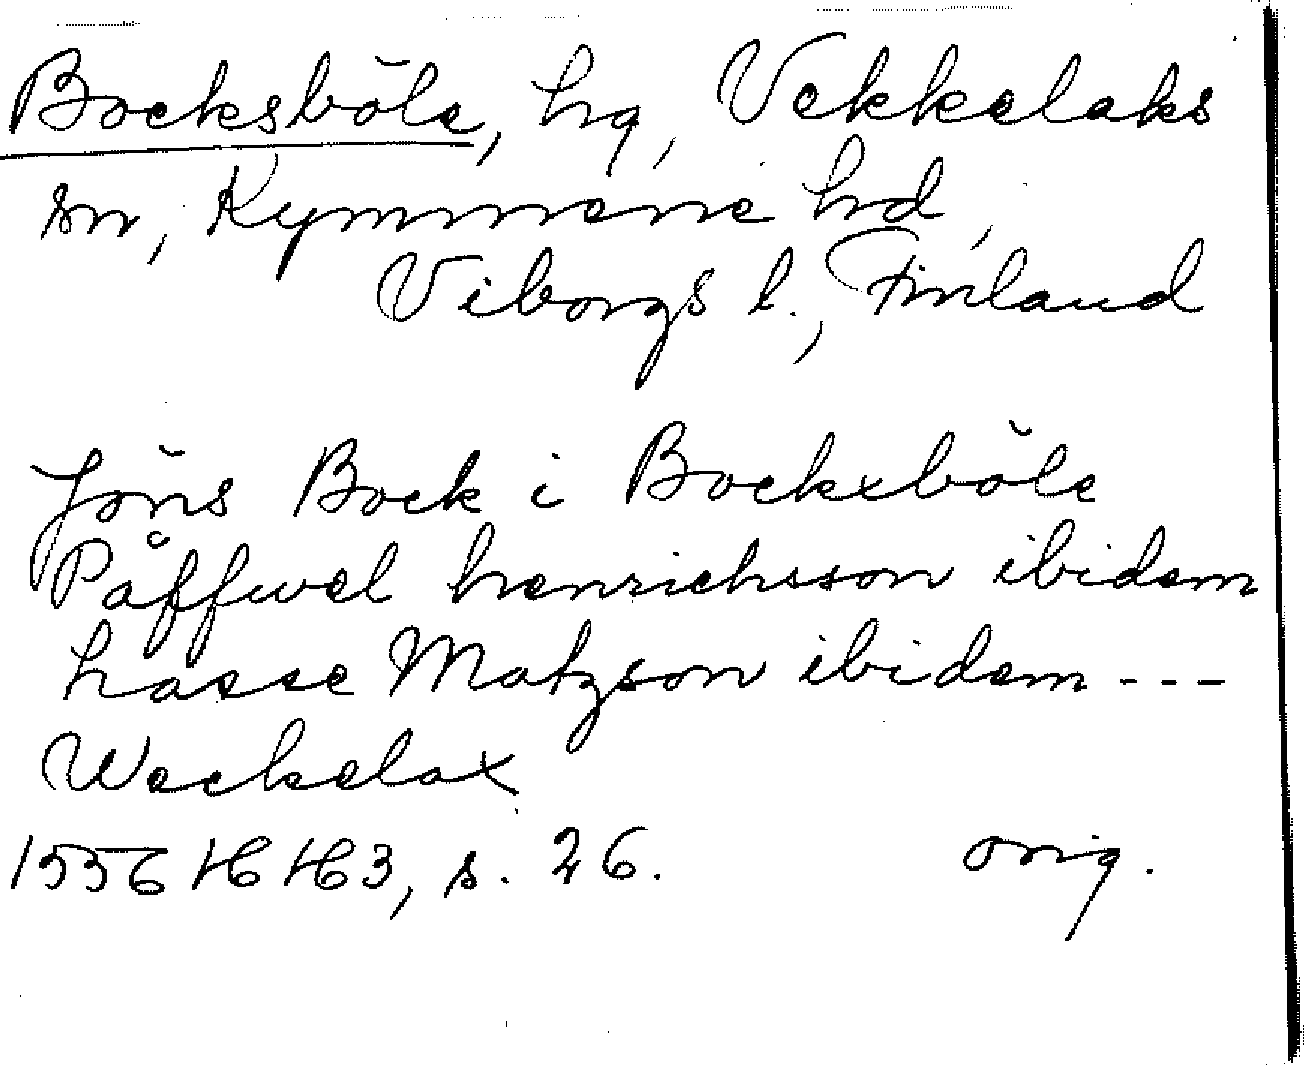 Bocksböle, hg, Vekkelaks
sn, Kymmene hd,
Viborgs l., Finland
Jöns Bock i Bockxböle
Påffwel henrichsson ibidem
hasse Matzson ibidem ---
Weckelax
1556 HH3, s. 26. orig.